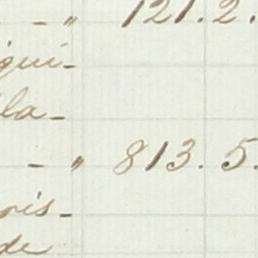 - " 121. 2.
qui-
la-
- " 813. 5.
ris-
de